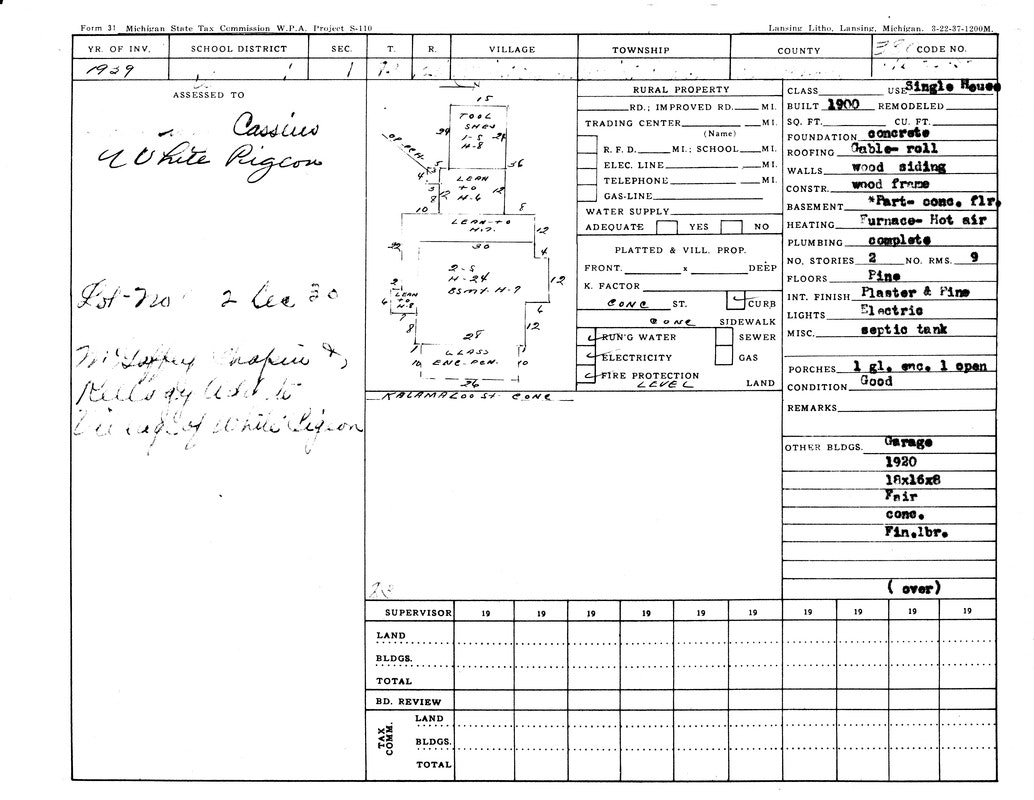 Form 31 Michigan State Tax Commission W.P.A. Project S-110
Lansing Litho, Lansing, Michigan. 3-22-37-1200M.
YR. OF INV. SCHOOL DISTRICT SEC. T. R. VILLAGE TOWNSHIP COUNTY CODE NO.
1939 1
ASSESSED TO
Cassius
White Pigeon
Lot No 2 Sec 20
Chapin &
Kellogg Add. to
Village of White Pigeon
15
TOOL
SHED
1-S
H-8
36
OP. PCH.
LEAN
TO
H-6
12
10
8
LEAN-TO
H-7
12
30
4
2-S
H-24
BSMT. H-7
12
LEAN
TO
H-8
6
7
8
4
12
28
GLASS
ENC. PCH.
10
10
26
KALAMAZOO ST. CONC
RURAL PROPERTY
RD.; IMPROVED RD. MI.
TRADING CENTER MI.
(Name)
R. F. D. MI.; SCHOOL MI.
ELEC. LINE MI.
TELEPHONE MI.
GAS-LINE
WATER SUPPLY
ADEQUATE YES NO
PLATTED & VILL. PROP.
FRONT. x DEEP
K. FACTOR
CONC ST. CURB
CONC SIDEWALK
RUN'G WATER SEWER
ELECTRICITY GAS
FIRE PROTECTION
LEVEL LAND
CLASS USE Single House
BUILT 1900 REMODELED
SQ. FT. CU. FT.
FOUNDATION concrete
ROOFING Gable- roll
WALLS wood siding
CONSTR. wood frame
BASEMENT *Part- conc. flr.
HEATING Furnace- Hot air
PLUMBING complete
NO. STORIES 2 NO. RMS. 9
FLOORS Pine
INT. FINISH Plaster & Pine
LIGHTS Electric
MISC. septic tank
PORCHES 1 gl. enc. 1 open
CONDITION Good
REMARKS
OTHER BLDGS. Garage
1920
18x16x8
Fair
conc.
Fin.lbr.
( over)
SUPERVISOR 19 19 19 19 19 19 19 19 19 19
LAND
BLDGS.
TOTAL
BD. REVIEW
TAX COMM.
LAND
BLDGS.
TOTAL